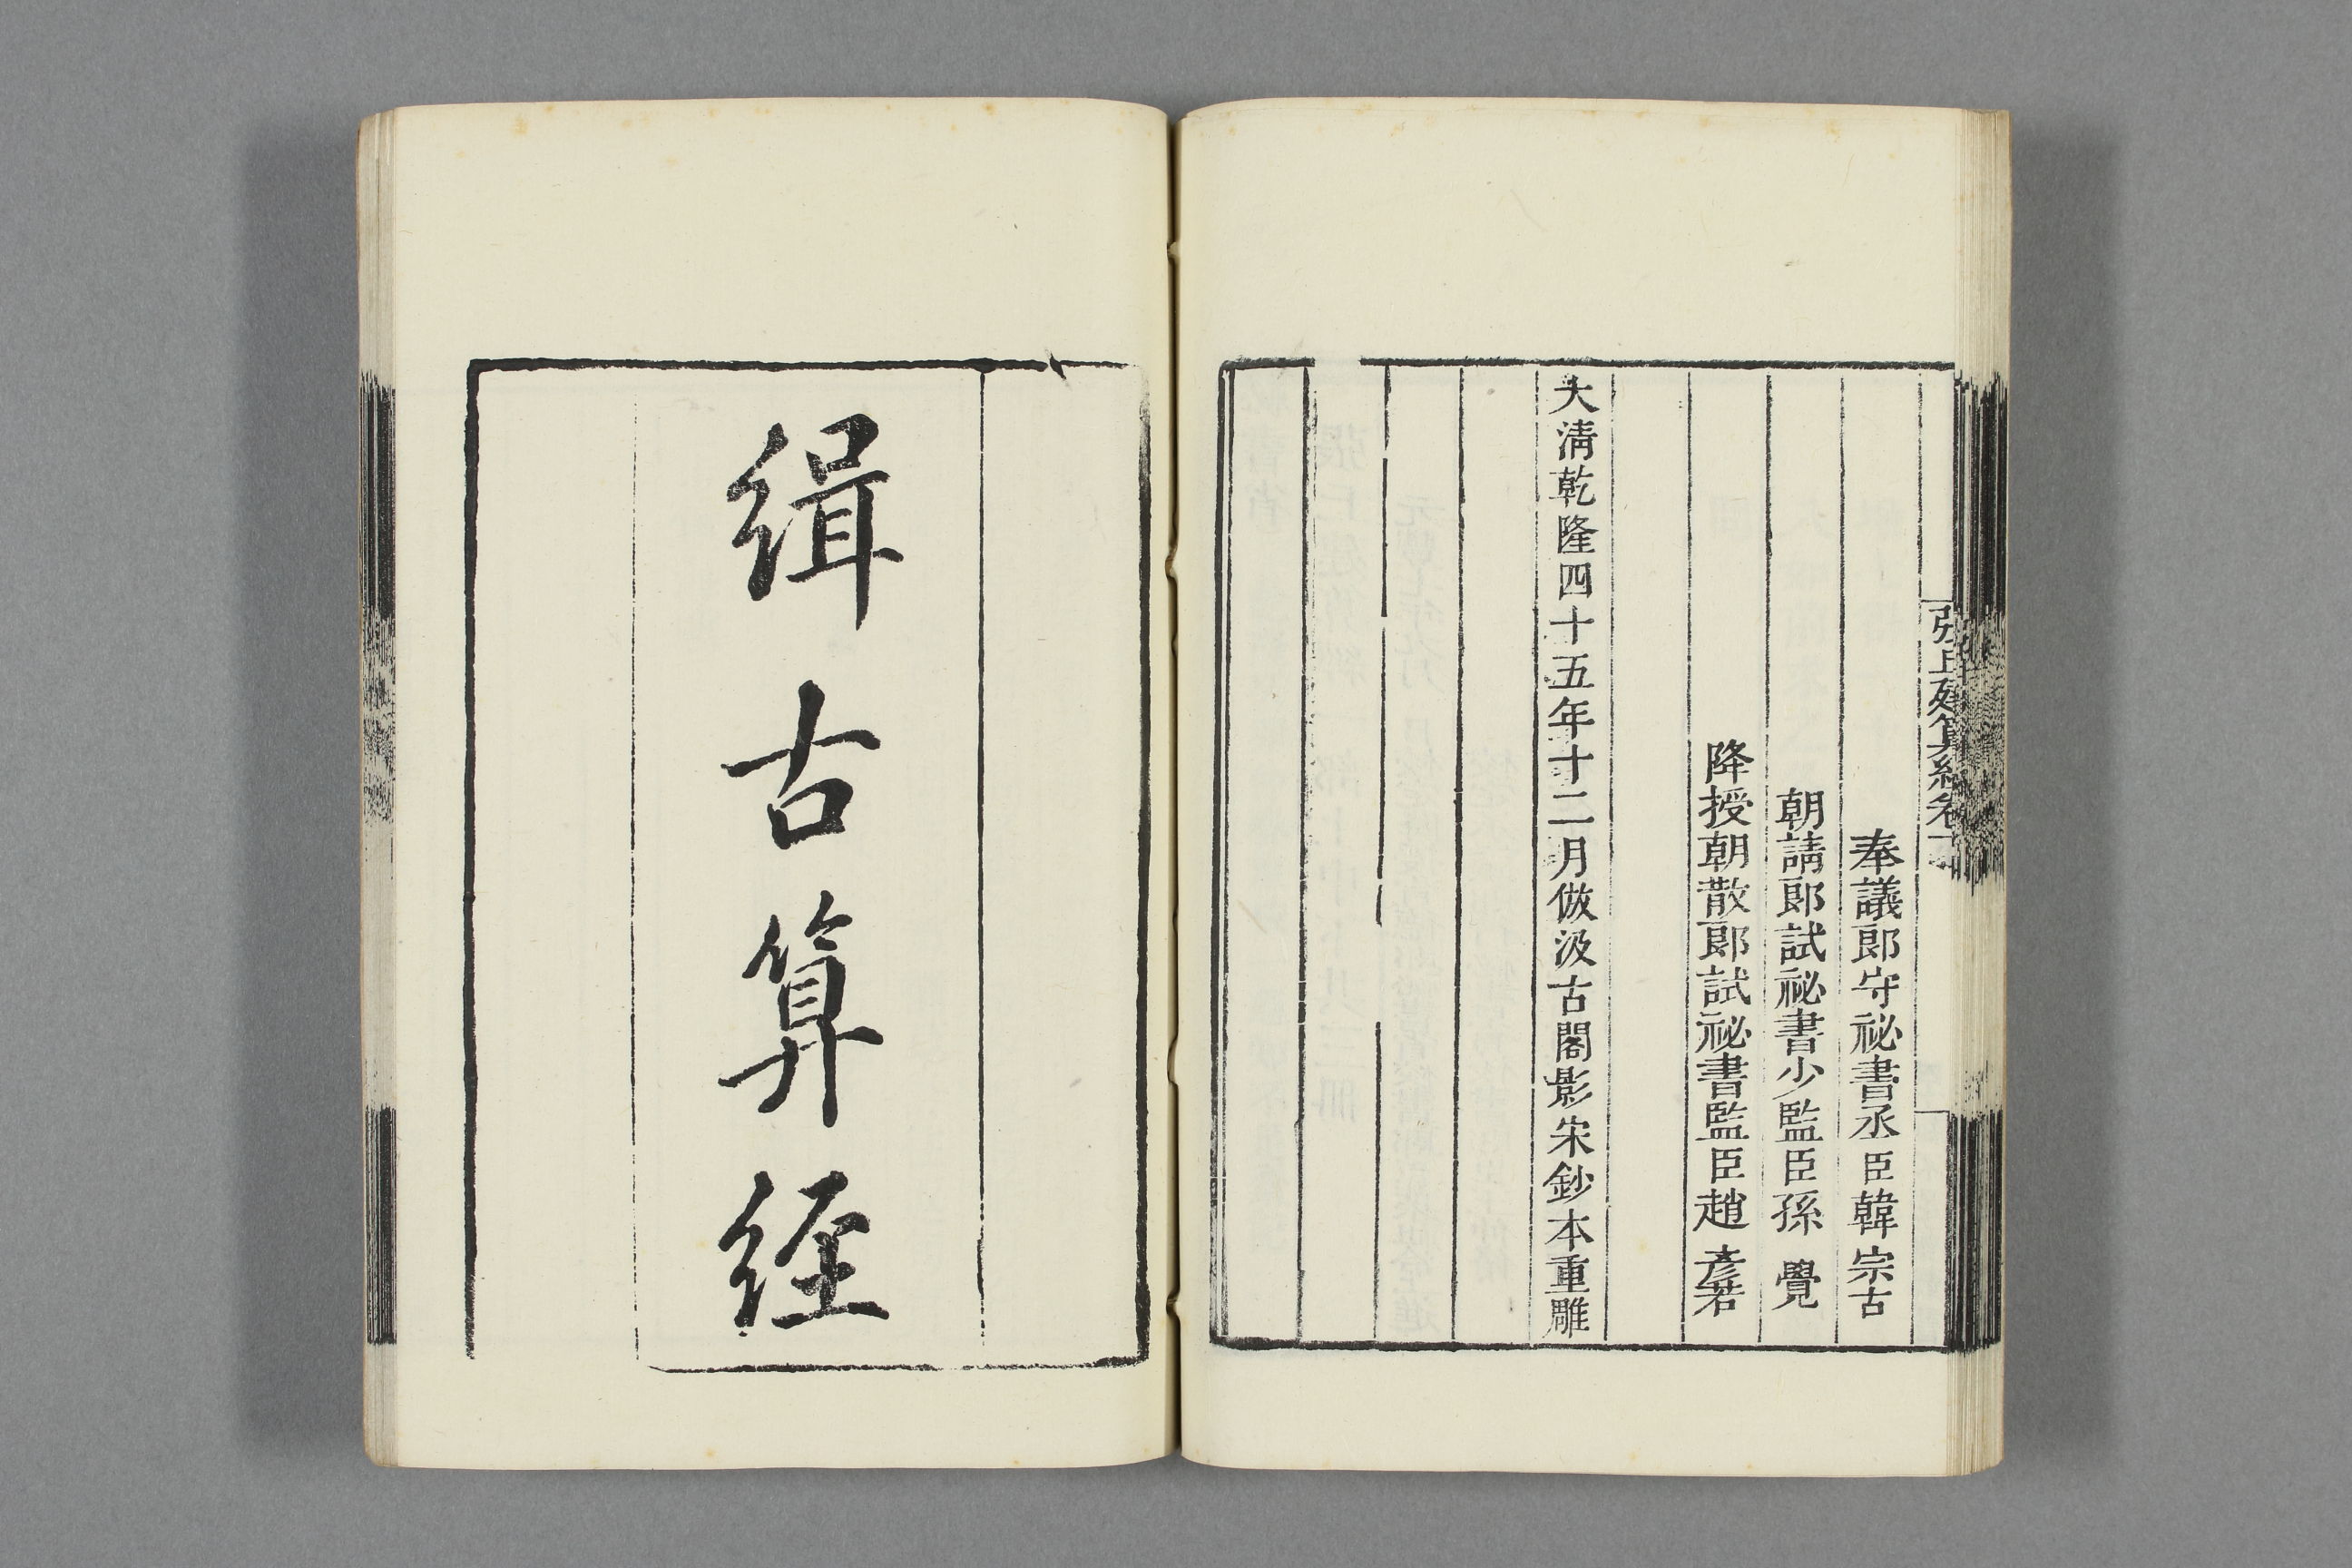 張丘建算經卷下
奉議郎守祕書丞臣韓宗古
朝請郎試祕書少監臣孫覺
降授朝散郎試祕書監臣趙彥若
大清乾隆四十五年十二月倣汲古閣影宋鈔本重雕
緝古算經